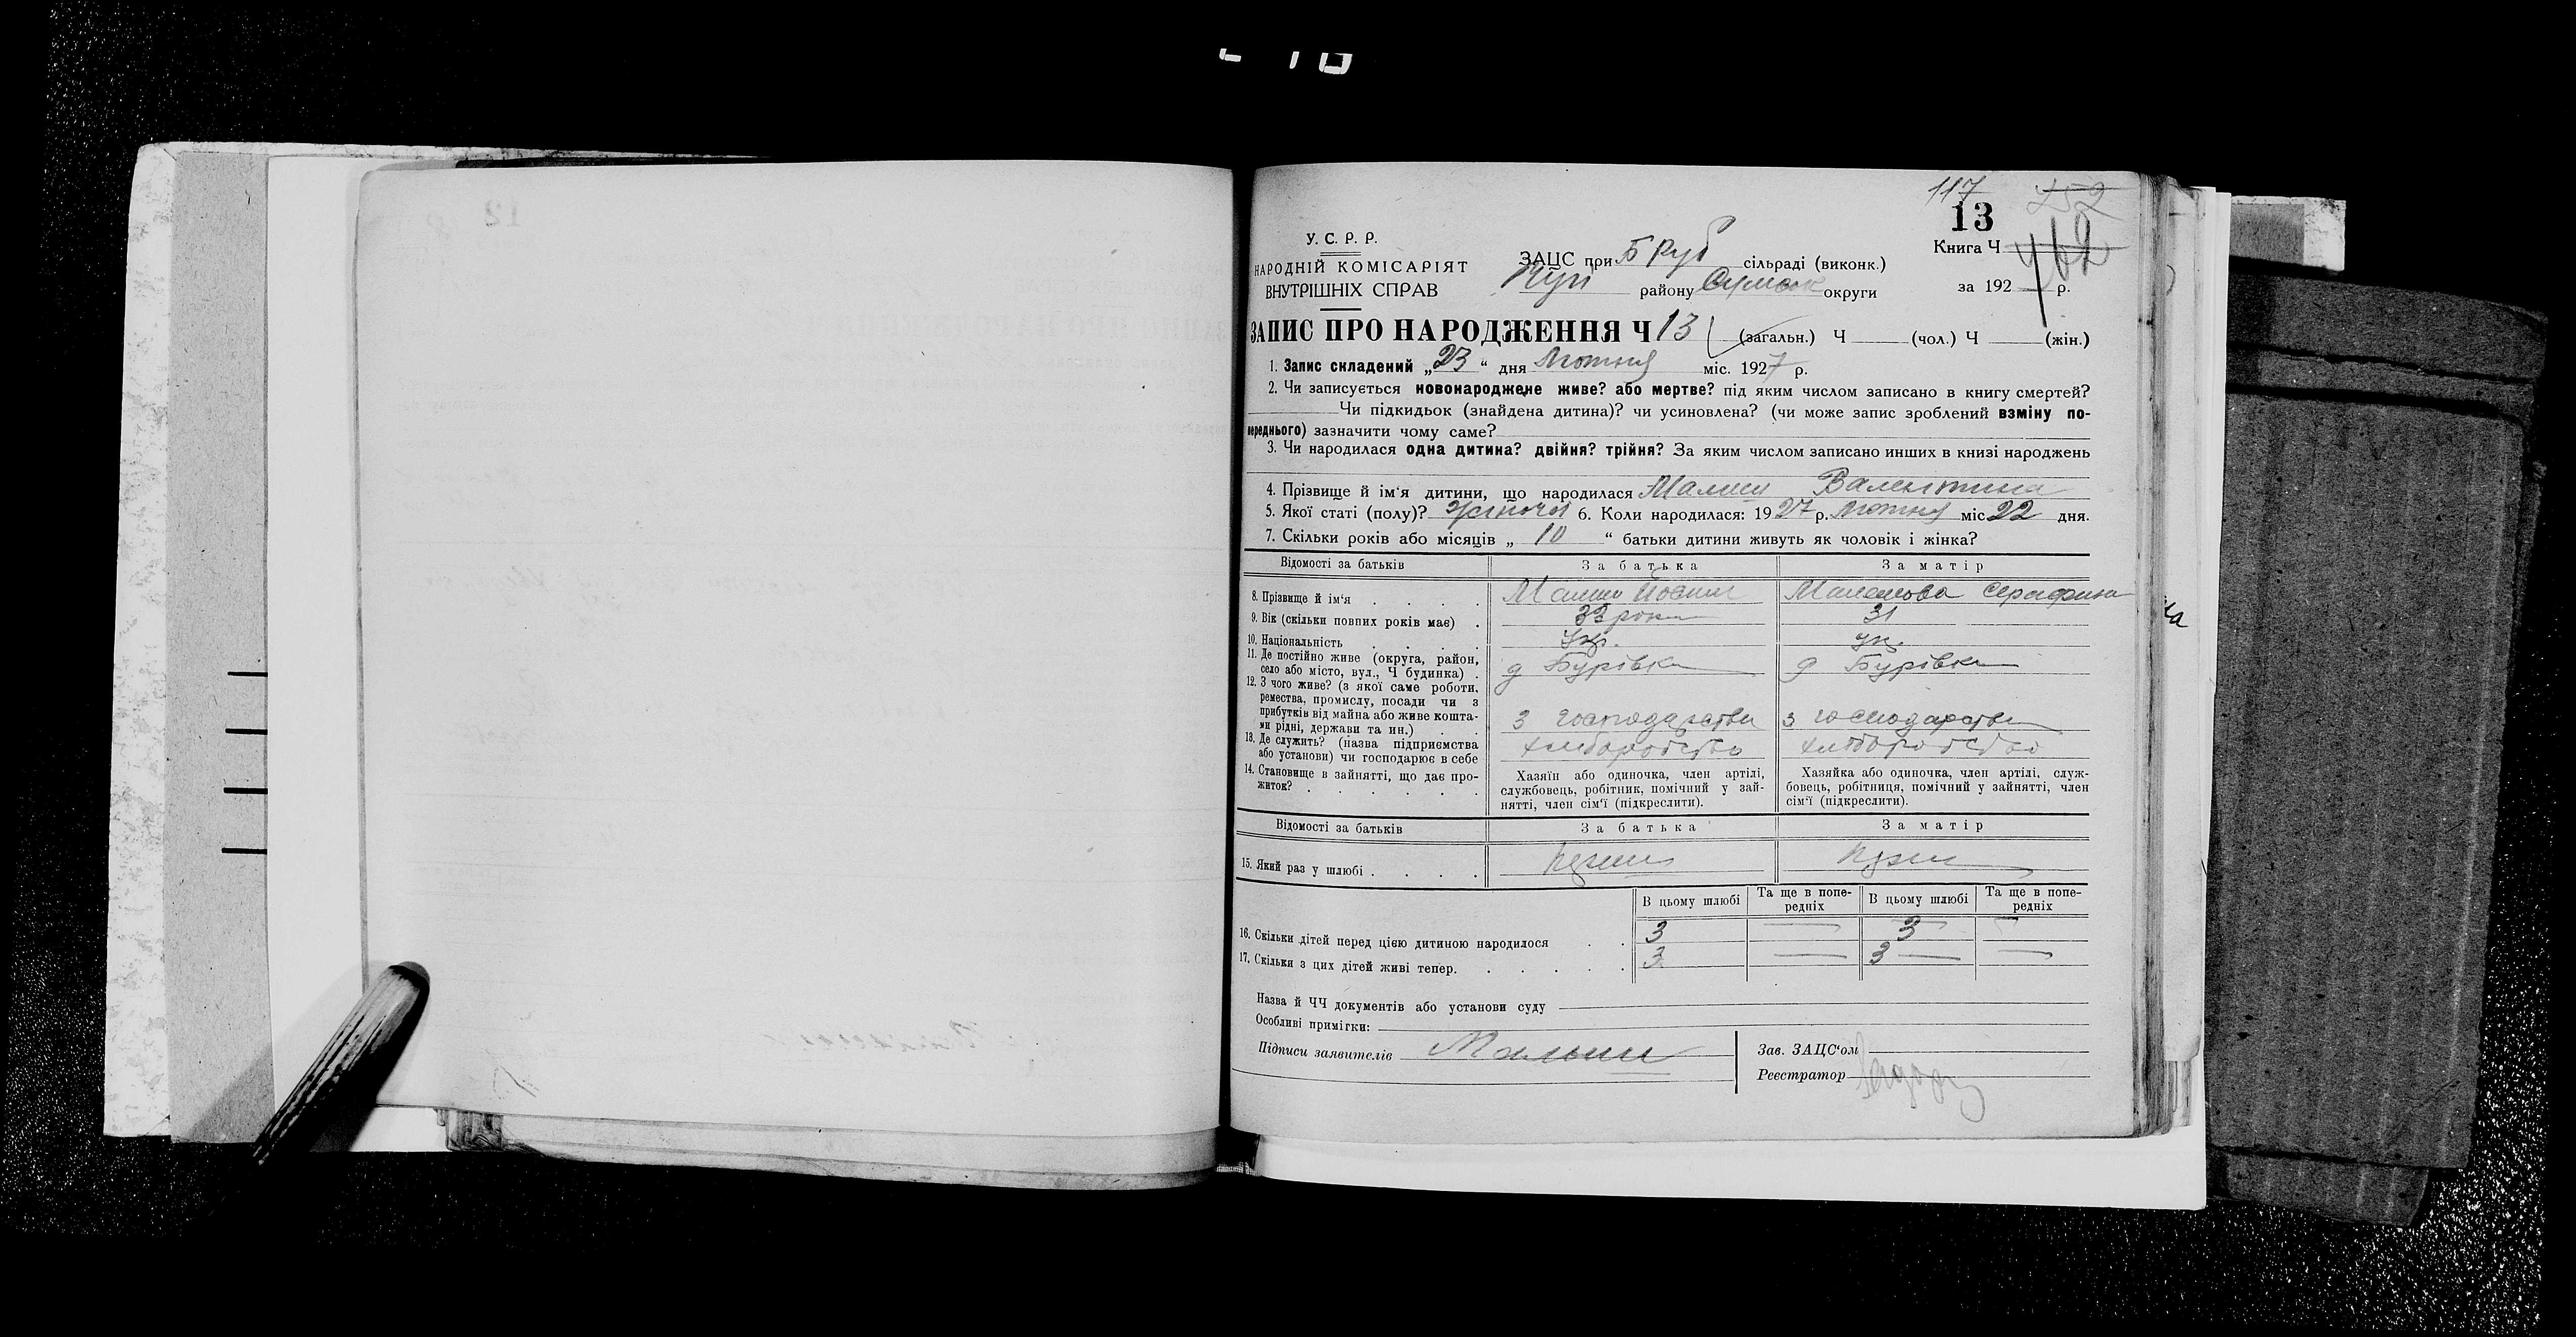 117 252
13
У. С. Р. Р.
НАРОДНІЙ КОМІСАРІЯТ
ВНУТРІШНІХ СПРАВ
ЗАЦС при Б Руб сільраді (виконк.)
району Сумськ округи
Книга Ч 762
за 192 р.
ЗАПИС ПРО НАРОДЖЕННЯ Ч 13 (загальн.) Ч (чол.) Ч (жін.)
1. Запис складений „23“ дня Лютня міс. 1927 р.
2. Чи записується новонароджене живе? або мертве? під яким числом записано в книгу смертей?
Чи підкидьок (знайдена дитина)? чи усиновлена? (чи може запис зроблений взміну по-
переднього) зазначити чому саме?
3. Чи народилася одна дитина? двійня? трійня? За яким числом записано инших в книзі народжень
4. Прізвище й ім‘я дитини, що народилася Валентина
5. Якої статі (полу)? Жіночої 6. Коли народилася: 1927 р. Лютня міс 22 дня.
7. Скільки років або місяців „ 10 “ батьки дитини живуть як чоловік і жінка?
Відомості за батьків За батька За матір
8. Прізвище й ім‘я . . . . Серафима
9. Вік (скільки повних років має) . 33 роки 31
10. Національність . . . . Укр. Ук.
11. Де постійно живе (округа, район,
село або місто, вул., Ч будинка) . д Бурівка д Бурівка
12. З чого живе? (з якої саме роботи,
ремества, промислу, посади чи з
прибутків від майна або живе кошта-
ми рідні, держави та ин.) . . з господарства з господарства
13. Де служить? (назва підприємства
або установи) чи господарює в себе хліборобство хліборобство
14. Становище в зайнятті, що дає про-
житок? . . . . . .
Хазяїн або одиночка, член артілі,
службовець, робітник, помічний у зай-
нятті, член сім‘ї (підкреслити).
Хазяйка або одиночка, член артілі, служ-
бовець, робітниця, помічний у зайнятті, член
сім‘ї (підкреслити).
Відомості за батьків За батька За матір
15. Який раз у шлюбі . . . .
В цьому шлюбі Та ще в попе-редніх В цьому шлюбі Та ще в попе-редніх
16. Скільки дітей перед цією дитиною народилося . . 3 — 3 —
17. Скільки з цих дітей живі тепер. . . . . . 3 — 3 —
Назва й ЧЧ документів або установи суду
Особливі примітки:
Підписи заявителів
Зав. ЗАЦС‘ом
Реєстратор